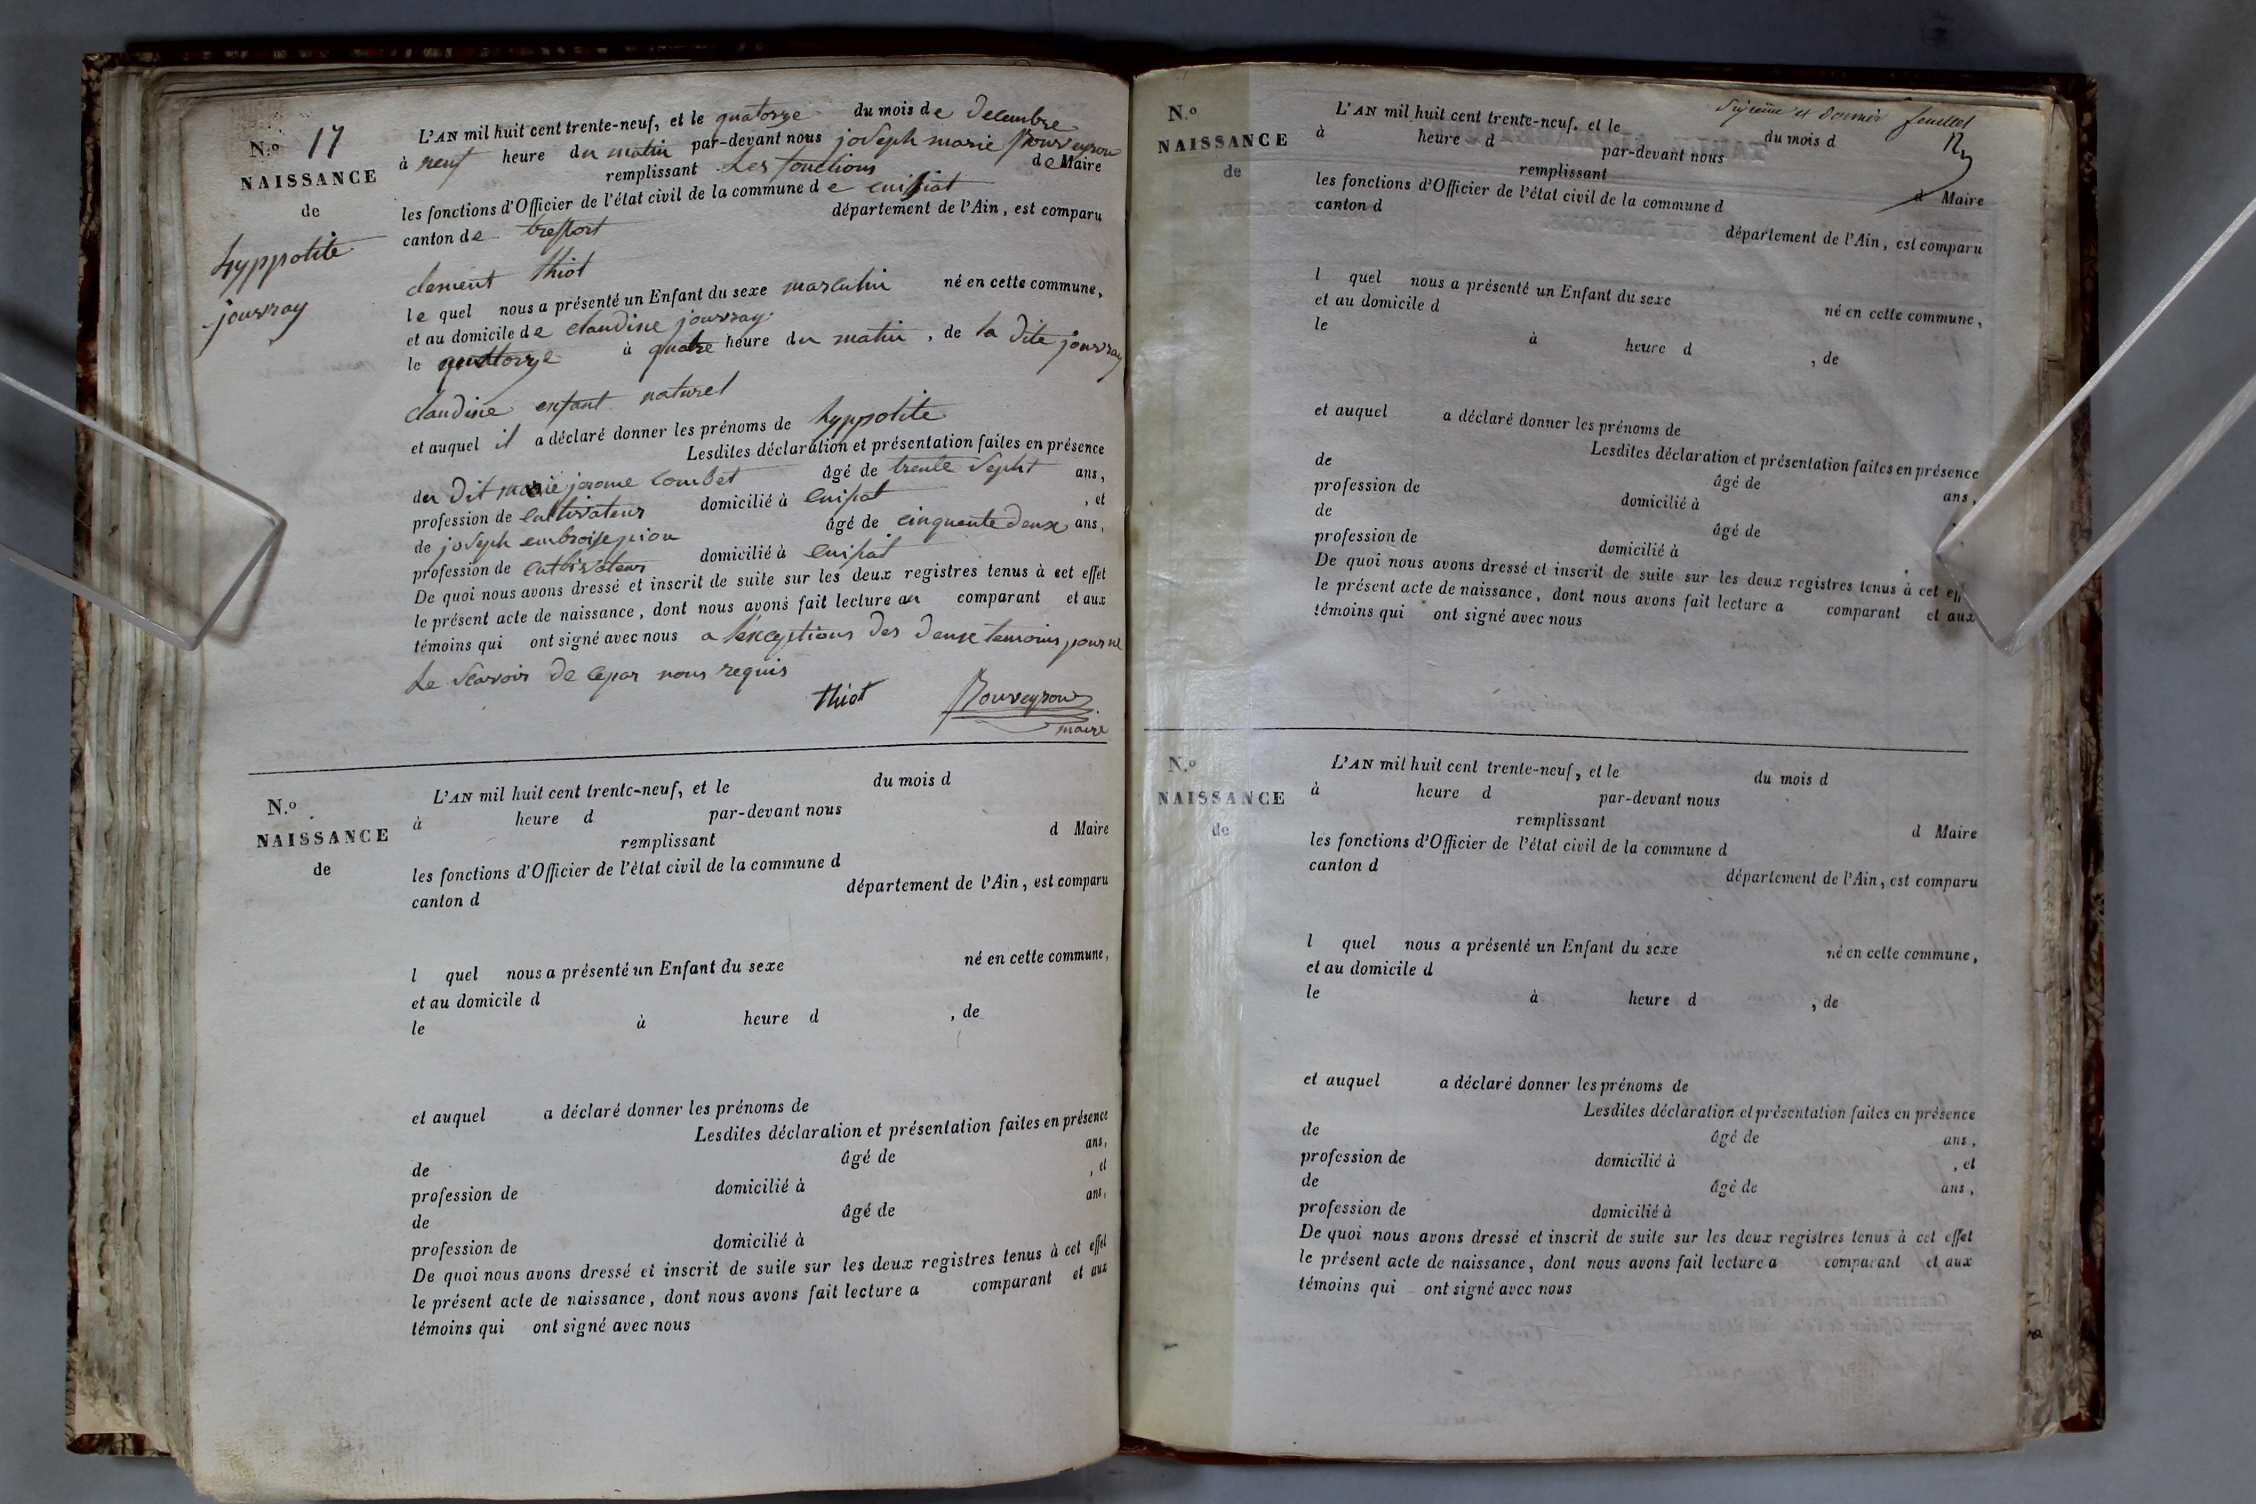 N.º 17
NAISSANCE
de
hyppolite
jouvray
L'AN mil huit cent trente-neuf, et le quatorze du mois de decembre
à neuf heure du matin par-devant nous joseph marie Bouveyron
remplissant les fonctions de Maire
les fonctions d'Officier de l'état civil de la commune de cuisiat
canton de treffort département de l'Ain, est comparu
clement thiot
le quel nous a présenté un Enfant du sexe masculin né en cette commune,
et au domicile de claudine jouvray
le quatorze à quatre heure du matin, de la dite jouvray
claudine enfant naturel
et auquel il a déclaré donner les prénoms de hyppolite
Lesdites déclaration et présentation faites en présence
du dit marie jerome combet âgé de trente sept ans,
profession de cultivateur domicilié à Cuisiat, et
de joseph embroise pion âgé de cinquente deux ans,
profession de cultivateur domicilié à Cuisiat
De quoi nous avons dressé et inscrit de suite sur les deux registres tenus à cet effet
le présent acte de naissance, dont nous avons fait lecture au comparant et aux
témoins qui ont signé avec nous a l'exceptions des deux temoins pour ne
le scavoir de ce par nous requis
thiot Bouveyron
maire
N.º
NAISSANCE
de
L'AN mil huit cent trente-neuf, et le du mois d
à heure d par-devant nous
remplissant d Maire
les fonctions d'Officier de l'état civil de la commune d
canton d département de l'Ain, est comparu
l quel nous a présenté un Enfant du sexe né en cette commune,
et au domicile d
le à heure d , de
et auquel a déclaré donner les prénoms de
Lesdites déclaration et présentation faites en présence
de âgé de ans,
profession de domicilié à , et
de âgé de ans,
profession de domicilié à
De quoi nous avons dressé et inscrit de suite sur les deux registres tenus à cet effet
le présent acte de naissance, dont nous avons fait lecture a comparant et aux
témoins qui ont signé avec nous
et dernier feuillet
N.º
NAISSANCE
de
L'AN mil huit cent trente-neuf, et le du mois d
à heure d par-devant nous
remplissant d Maire
les fonctions d'Officier de l'état civil de la commune d
canton d département de l'Ain, est comparu
l quel nous a présenté un Enfant du sexe né en cette commune,
et au domicile d
le à heure d , de
et auquel a déclaré donner les prénoms de
Lesdites déclaration et présentation faites en présence
de âgé de ans,
profession de domicilié à
de âgé de
profession de domicilié à
De quoi nous avons dressé et inscrit de suite sur les deux registres tenus à cet
le présent acte de naissance, dont nous avons fait lecture a comparant et aux
témoins qui ont signé avec nous
N.º
NAISSANCE
de
L'AN mil huit cent trente-neuf, et le du mois d
à heure d par-devant nous
remplissant d Maire
les fonctions d'Officier de l'état civil de la commune d
canton d département de l'Ain, est comparu
l quel nous a présenté un Enfant du sexe né en cette commune,
et au domicile d
le à heure d , de
et auquel a déclaré donner les prénoms de
Lesdites déclaration et présentation faites en présence
de âgé de ans,
profession de domicilié à , et
de âgé de ans,
profession de domicilié à
De quoi nous avons dressé et inscrit de suite sur les deux registres tenus à cet effet
le présent acte de naissance, dont nous avons fait lecture a comparant et aux
témoins qui ont signé avec nous